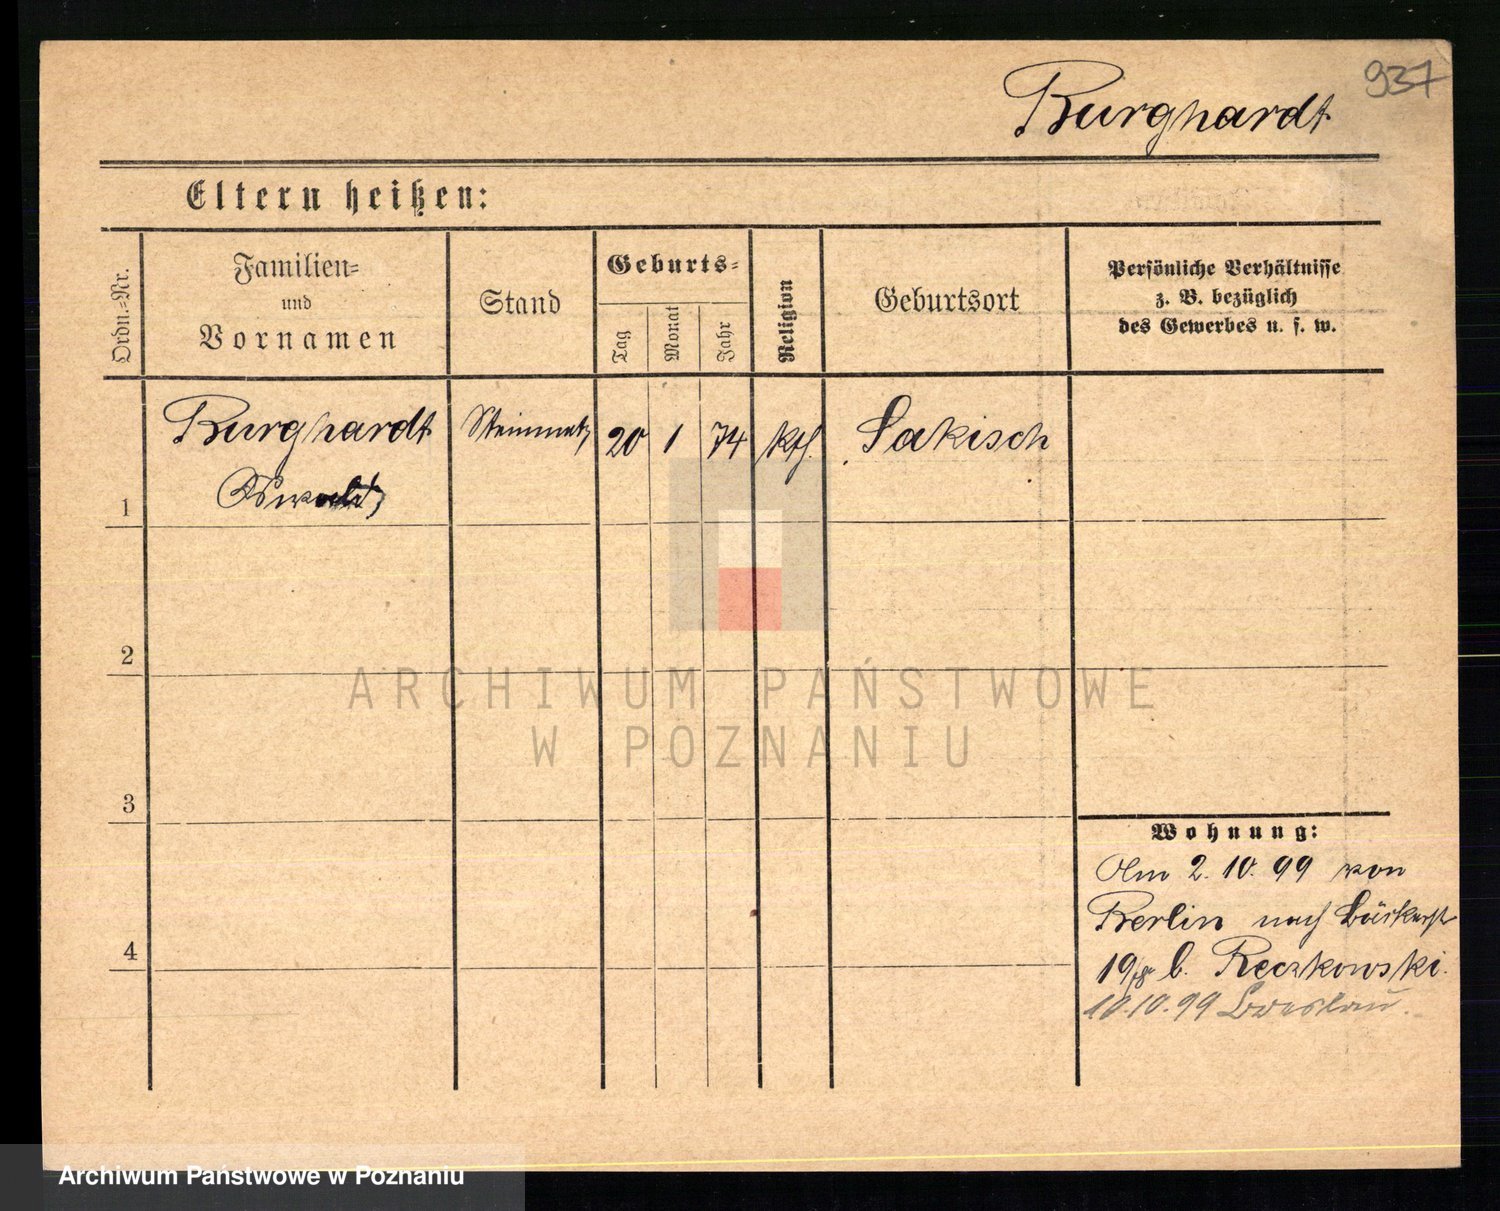 937
Burghardt
Eltern heißen:
Ordn.=Nr.
Familien=
und
Vornamen
Stand
Geburts=
Tag
Monat
Jahr
Religion
Geburtsort
Persönliche Verhältnisse
z. B. bezüglich
des Gewerbes u. s. w.
Burghardt Steinmetz 20 1 74 kth. Sakisch
Oswald
1
2
3
4
Wohnung:
Am 2. 10. 99 von
Berlin nach Bäckerstr
19 b. Reczkowski.
10.10.99 Breslau.
ARCHIWUM PAŃSTWOWE
W POZNANIU
Archiwum Państwowe w Poznaniu